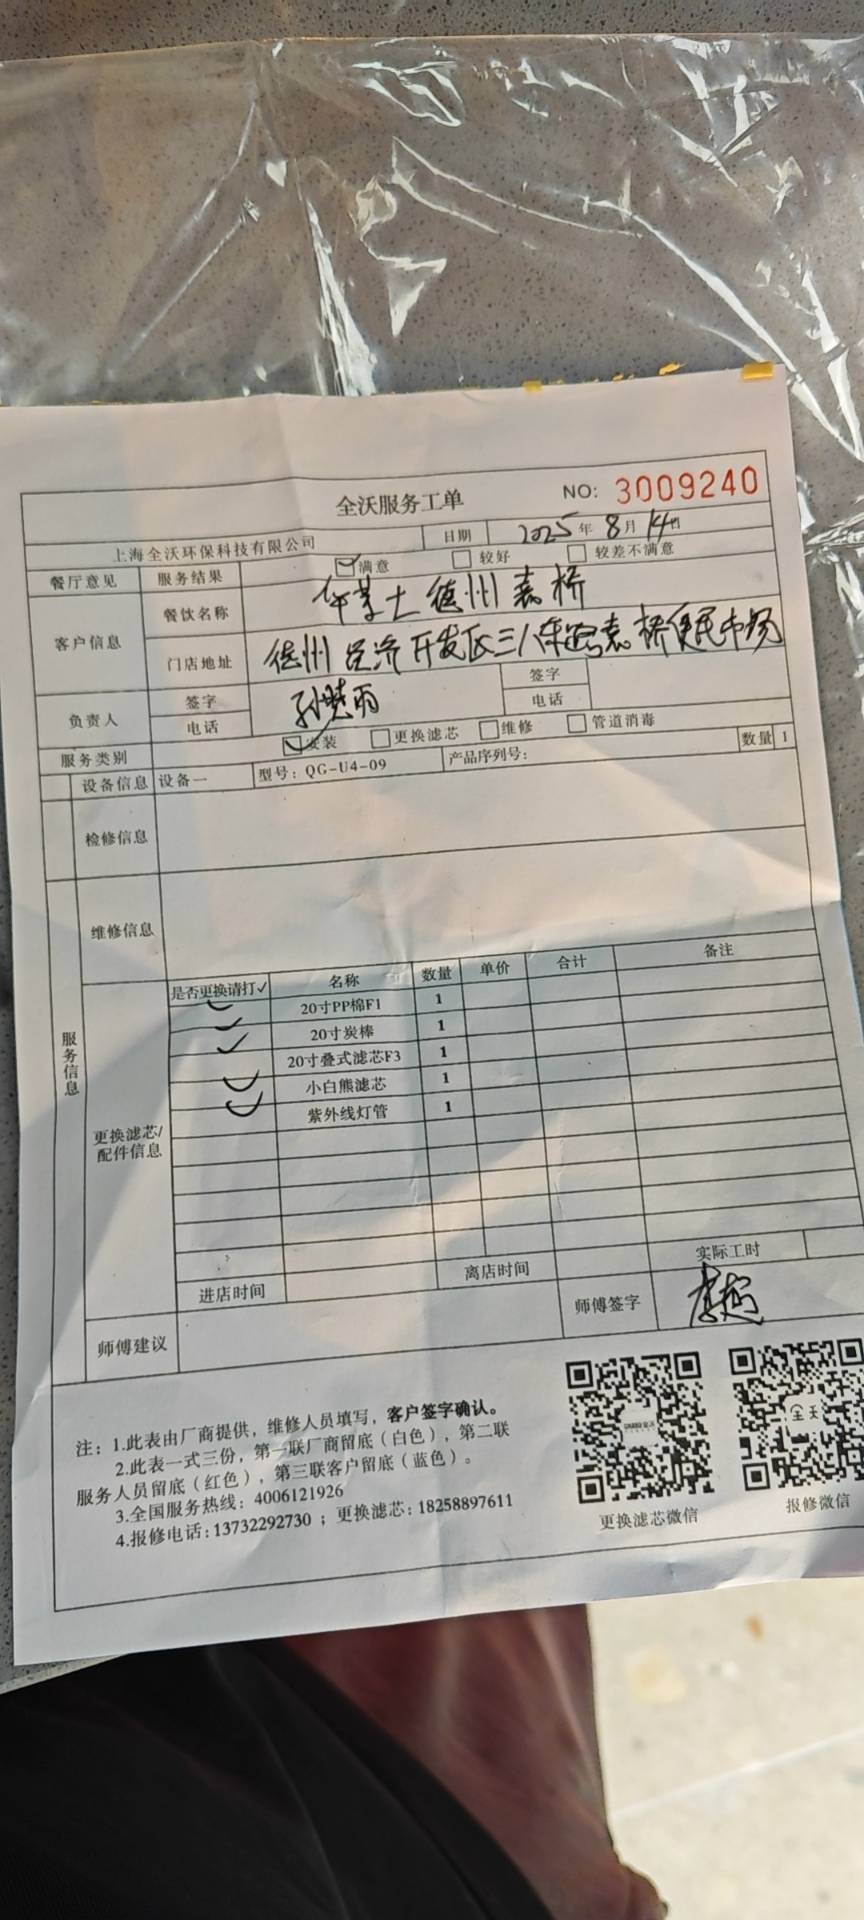 全沃服务工单 NO: 3009240
上海全沃环保科技有限公司 日期 2025年8月14日
餐厅意见 服务结果 满意 较好 较差不满意
客户信息 餐饮名称 华莱士德州袁桥
门店地址 德州经济开发区三八东路袁桥便民市场
负责人 签字 孙慧雨 签字
电话 电话
服务类别 安装 更换滤芯 维修 管道消毒
设备信息 设备一 型号: QG-U4-09 产品序列号: 数量 1
检修信息
维修信息
服务信息
更换滤芯/配件信息
是否更换请打✓ 名称 数量 单价 合计 备注
✓ 20寸PP棉F1 1
✓ 20寸炭棒 1
✓ 20寸叠式滤芯F3 1
✓ 小白熊滤芯 1
✓ 紫外线灯管 1
进店时间 离店时间 实际工时
师傅建议 师傅签字
注: 1.此表由厂商提供，维修人员填写，客户签字确认。
2.此表一式三份，第一联厂商留底（白色），第二联
服务人员留底（红色），第三联客户留底（蓝色）。
3.全国服务热线: 4006121926
4.报修电话: 13732292730 ; 更换滤芯: 18258897611
更换滤芯微信 报修微信